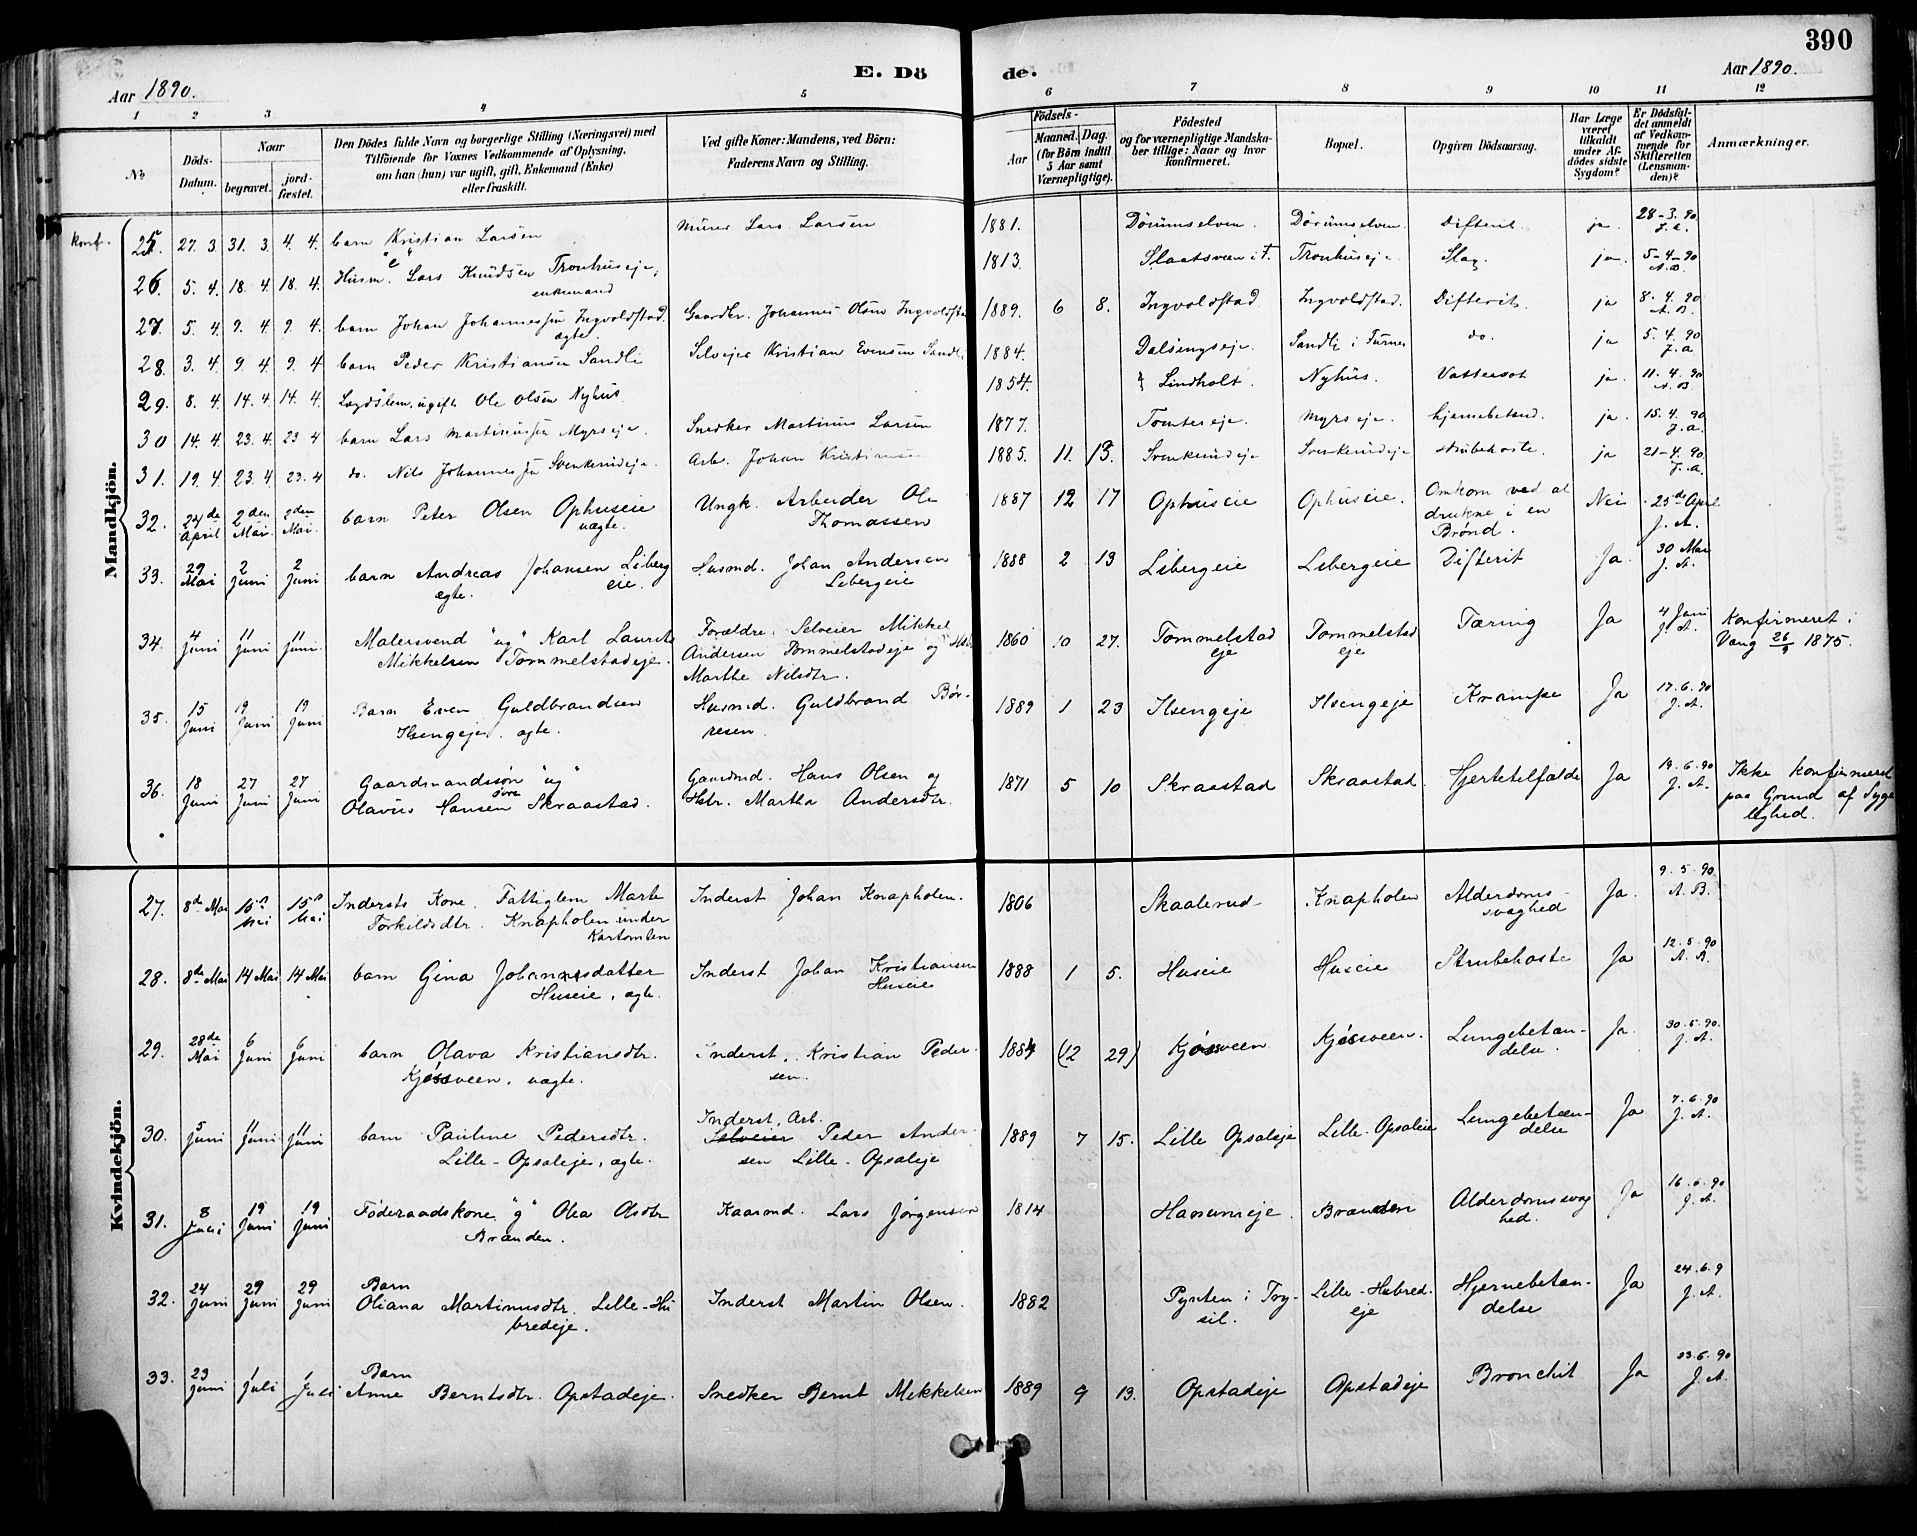 390
E. Döde.
Aar 1890.
Aar 1890.
1 2 3 4 5 6 7 8 9 10 11 12
No
Döds-Datum.
Naar
begravet.
jordfæstet.
Den Dödes fulde Navn og borgerlige Stilling (Næringsvei) med
Tilföiende for Voxnes Vedkommende af Oplysning,
om han (hun) var ugift, gift, Enkemand (Enke)
eller fraskilt.
Ved gifte Koner: Mandens, ved Börn:
Faderens Navn og Stilling.
Födsels-
Aar
Maaned. Dag.
(for Börn indtil
5 Aar samt
Værnepligtige).
Födested
og for værnepligtige Mandska-
ber tillige: Naar og hvor
konfirmeret.
Bopæl.
Opgiven Dödsaarsag.
Har Læge
været
tilkaldt
under Af-
dödes sidste
Sygdom?
Er Dödsfal-
det anmeldt
af Vedkom-
mende for
Skifteretten
(Lensman-
den)?
Anmærkninger.
Mandkjön.
konf.
25. 27. 3 31. 3 4. 4. barn Kristian Larsen "e" Murer Lars Larsen 1881. Dörumselven. Dörumselven. Difterit. ja. 28-3.90 J.A.
26. 5. 4. 18. 4. 18. 4. Husm. Lars Knudsen Tronhuseje, enkemand 1813. Slaatsveen i F. Tronhuseje. Slag. ja. 5-4-90 A.B.
27. 5. 4. 9. 4 9. 4 barn Johan Johannessen Ingvoldstad. ægte. Gaardbr. Johannes Olsen Ingvoldstad 1889. 6 8. Ingvoldstad Ingvoldstad. Difterit. ja 8.4.90 A.B.
28. 3. 4 9. 4 9. 4 barn Peder Kristiansen Sandli Selvejer Kristian Evensen Sandli 1884. Dalsengseje. Sandli i Furnes do. ja 5.4.90 J.A.
29. 8. 4. 14. 4. 14. 4. Lægdslem, ugift Ole Olsen Nyhus 1854. Lindholt. Nyhus. Vattersot ja 11.4.90 A.B.
30 14. 4. 23. 4. 23 4 barn Lars Martinussen Myrseje. Snedker Martinus Larsen 1877. Tomteseje. Myrseje. hjernebetænd. ja. 15.4.90 J.A.
31. 19. 4 23. 4 23. 4 do. Nils Johannessen Svenkerudeje. Arb. Johan Kristiansen 1885. 11. 13. Svenkerudeje Svenkerudeje strubehoste. ja 21-4.90 J.A.
32. 24de April 2den Mai 2den Mai. barn Peter Olsen Ophuseie uægte. Ungk. Arbeider Ole Thomassen 1887 12 17 Ophuseie Ophuseie. Omkom ved at drukne i en Brønd. Nei 25de April J.A.
33. 29 Mai 2 Juni 2 Juni barn Andreas Johansen Libergeie. ægte. Husmd. Johan Andersen Libergeie 1888 2 13 Libergeie Libergeie Difterit Ja. 30 Mai J.A.
34. 4 Juni 11 Juni 11 Juni. Malersvend "ug" Karl Laurits Mikkelsen Tommelstadeje. Forældre. Selveier Mikkel Andersen Tommelstadeje og Hstr Marthe Nilsdtr. 1860 10 27. Tommelstad eje Tommelstad eje Tæring Ja 4 Juni J.A. Konfirmeret i Vang 26/9 1875.
35. 15 Juni 19 Juni 19 Juni Barn Even Guldbrandsen Ilsengeje. ægte. Husmd. Guldbrand Børresen. 1889 1 23 Ilsengeje Ilsengeje Krampe Ja 17.6.90 J.A.
36. 18 Juni 27 Juni 27 Juni Gaardmandssøn "ug" Olavus Hansen Skraastad øvre. Gaardmd. Hans Olsen og Hstr. Martha Andersdtr. 1871 5 10 Skraastad Skraastad Hjertetilfælde Ja 19.6.90 J.A. Ikke konfirmeret paa Grund af Sygelighed.
Kvindekjön.
27. 8de Mai 15de Mai 15de Mai Indersts Kone. Fattiglem Marte Torkildsdtr. Knapholen under Kartomten Inderst Johan Knapholen. 1806 Skaalerud Knapholen Alderdomssvaghed Ja. 9.5.90 A.B.
28. 8de Mai 14 Mai 14 Mai barn Gina Johannesdatter Huseie, ægte. Inderst Johan Kristiansen Huseie 1888 1 5. Huseie Huseie Strubehoste Ja 12.5.90 A.B.
29. 28de Mai 6 Juni 6 Juni barn Olava Kristiansdtr. Kjøsveen, uægte. Inderst. Kristian Pedersen. 1884 (12 29) Kjøsveen Kjøsveen. Lungebetændelse. Ja. 30.5.90. J.A.
30. 5 Juni 11 Juni 11 Juni barn Pauline Pedersdtr. Lille-Opsaleje, ægte. Inderst, Arb. Selveier Peder Andersen Lille-Opsaleje 1889 7 15. Lille Opsaleje Lille-Opsaleie Lungebetændelse Ja 7.6.90 J.A.
31. 8 Juni 19 Juni 19 Juni Föderaadskone "g" Olea Olsdtr Branden. Kaarmd. Lars Jørgensen 1814 Hanumeje. Branden Alderdomssvaghed. Ja 16.6.90 J.A.
32. 24 Juni 29 Juni 29 Juni Barn Oliana Martinusdtr. Lille-Hubredeje. Inderst Martin Olsen. 1882 Pynten i Trysil. Lille-Hubredeje Hjernebetændelse Ja 24.6.9 J.A.
33. 23 Juni 1 Juli 1 Juli Barn Anne Berntsdtr. Opstadeje. Snedker Bernt Mikkelsen 1889 9 13. Opstadeje Opstadeje Bronchit Ja 23.6.90 J.A.